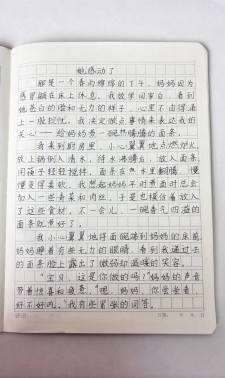 她感动了
那是一个春雨绵绵的下午，妈妈因为
感冒躺在床上休息。我放学回家后，看到
她苍白的脸和无力的样子，心里不由得涌
上一股担忧。我决定做点事情来表达我的
关心——给妈妈煮一碗热腾腾的面条。
我来到厨房里，小心翼翼地点燃炉火，
放上锅倒入清水，待水沸腾后，放入面条，
用筷子轻轻搅拌，面条在热水里翻腾，慢
慢变得柔软。我想起妈妈平时煮面时也会
加入一些青菜和肉丝，于是也模仿着放入
了这些食材。不一会儿，一碗香气四溢的
面条就煮好了。
我小心翼翼地将面碗端到妈妈的床前，
妈妈睁着有些无力的眼睛，看到我递过去
的面条脸上露出了微弱却温暖的笑容。
“宝贝，这是你做的吗？”妈妈的声音
带着惊喜和疲惫。“嗯，妈妈，你尝尝看，
好不好吃。”我有些紧张的问答。